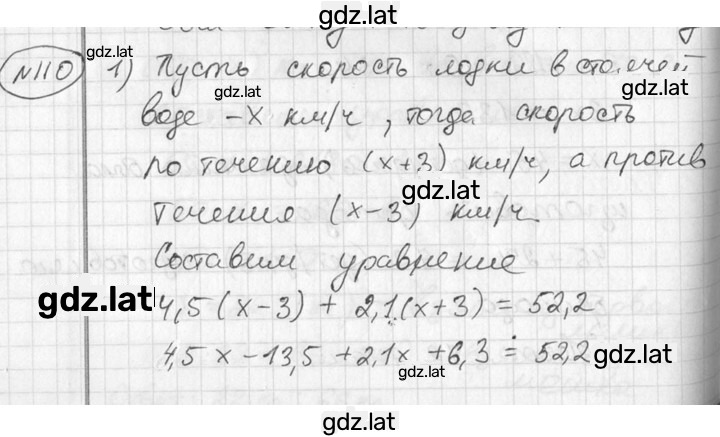 gdz.lat
gdz.lat
№110 1) Пусть скорость лодки в стоячей
gdz.lat
воде - х км/ч, тогда скорость
по течению (х+3) км/ч, а против
gdz.lat
течения (х-3) км/ч.
Составим уравнение
gdz.lat
4,5(х-3) + 2,1(х+3) = 52,2
4,5х - 13,5 + 2,1х + 6,3 = 52,2
gdz.lat
gdz.lat
gdz.lat